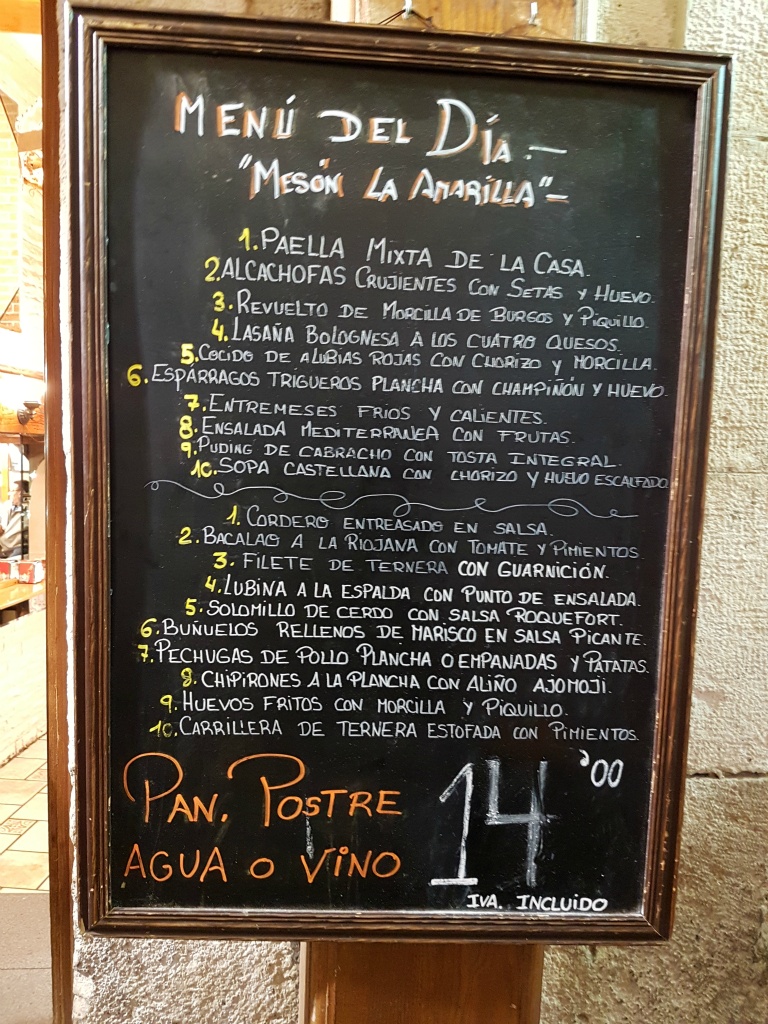 MENÚ DEL DÍA.-
"MESÓN LA AMARILLA"-
1. PAELLA MIXTA DE LA CASA.
2. ALCACHOFAS CRUJIENTES CON SETAS Y HUEVO.
3. REVUELTO DE MORCILLA DE BURGOS Y PIQUILLO.
4. LASAÑA BOLOGNESA A LOS CUATRO QUESOS.
5. COCIDO DE ALUBIAS ROJAS CON CHORIZO Y MORCILLA.
6. ESPÁRRAGOS TRIGUEROS PLANCHA CON CHAMPIÑÓN Y HUEVO.
7. ENTREMESES FRIOS Y CALIENTES.
8. ENSALADA MEDITERRANEA CON FRUTAS.
9. PUDING DE CABRACHO CON TOSTA INTEGRAL.
10. SOPA CASTELLANA CON CHORIZO Y HUEVO ESCALFADO.
1. CORDERO ENTREASADO EN SALSA.
2. BACALAO A LA RIOJANA CON TOMATE Y PIMIENTOS.
3. FILETE DE TERNERA CON GUARNICIÓN.
4. LUBINA A LA ESPALDA CON PUNTO DE ENSALADA.
5. SOLOMILLO DE CERDO CON SALSA ROQUEFORT.
6. BUÑUELOS RELLENOS DE MARISCO EN SALSA PICANTE.
7. PECHUGAS DE POLLO PLANCHA O EMPANADAS Y PATATAS.
8. CHIPIRONES A LA PLANCHA CON ALIÑO AJOMOJI.
9. HUEVOS FRITOS CON MORCILLA Y PIQUILLO.
10. CARRILLERA DE TERNERA ESTOFADA CON PIMIENTOS.
PAN, POSTRE
AGUA O VINO
14'00
IVA. INCLUIDO